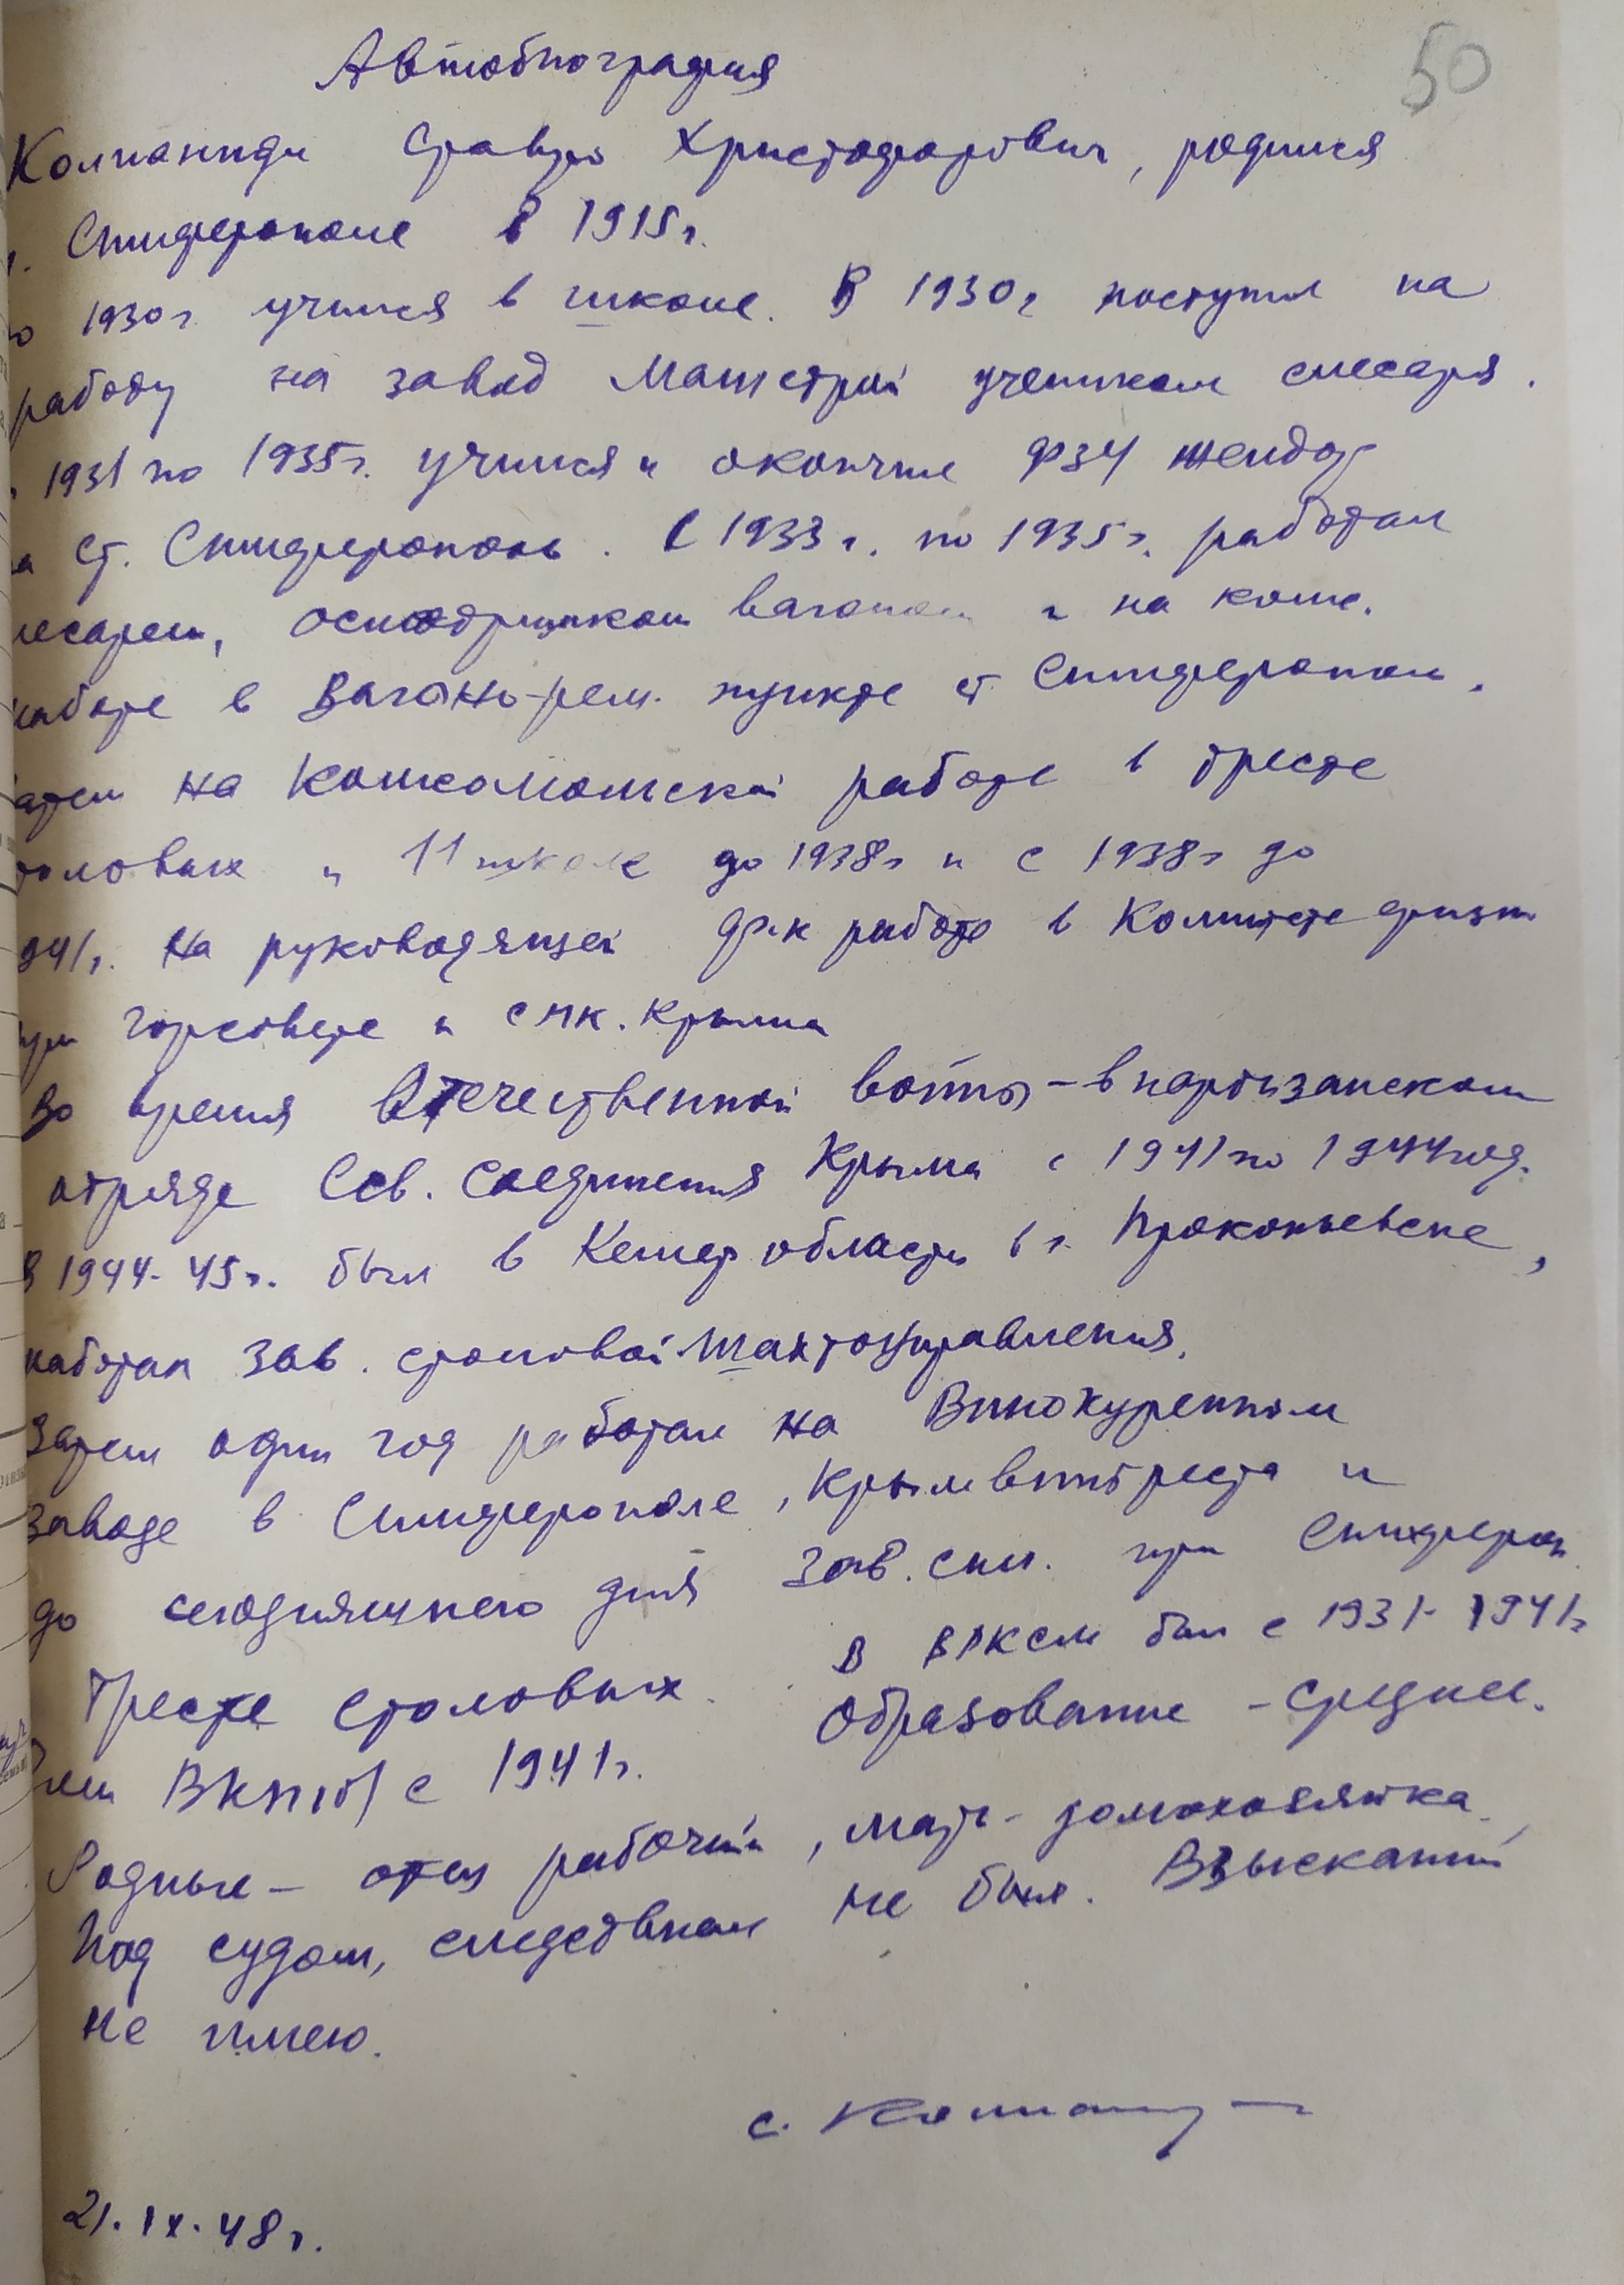 50
Автобиография
Компаниди Ставро Христофорович, родился
г. Симферополе в 1915 г.
о 1930 г. учился в школе. В 1930 г поступил на
работу на завод Машстрой учеником слесаря.
1931 по 1935 г. учился и окончил ФЗУ желдор
а ст. Симферополь. С 1933 г. по 1935 г. работал
лесарем, осмотрщиком вагонов и на комс.
работе в Вагоно-рем. пункте ст. Симферополь.
атем на комсомольской работе в тресте
толовых и 11 школе до 1938 г и с 1938 г до
941 г. на руководящей ф.к работе в Комитете физк
при горсовете и СНК. Крыма
Во время Отечественной войны - в партизанском
отряде Сев. Соединения Крыма с 1941 по 1944 год.
В 1944-45 г. был в Кемер области в г. Прокопьевске,
работал зав. столовой Шахтоуправления.
Затем один год работал на Винокуренном
заводе в Симферополе, Крымвинтреста и
до сегодняшнего дня зав. скл. при Симфероп.
Тресте столовых. В ВЛКСМ был с 1931-1941 г
член ВКП(б) с 1941 г. Образование - среднее.
Родные - отец рабочий, мать - домохозяйка.
Под судом, следствием не был. Взысканий
не имею.
С. Компаниди
21.IX.48 г.